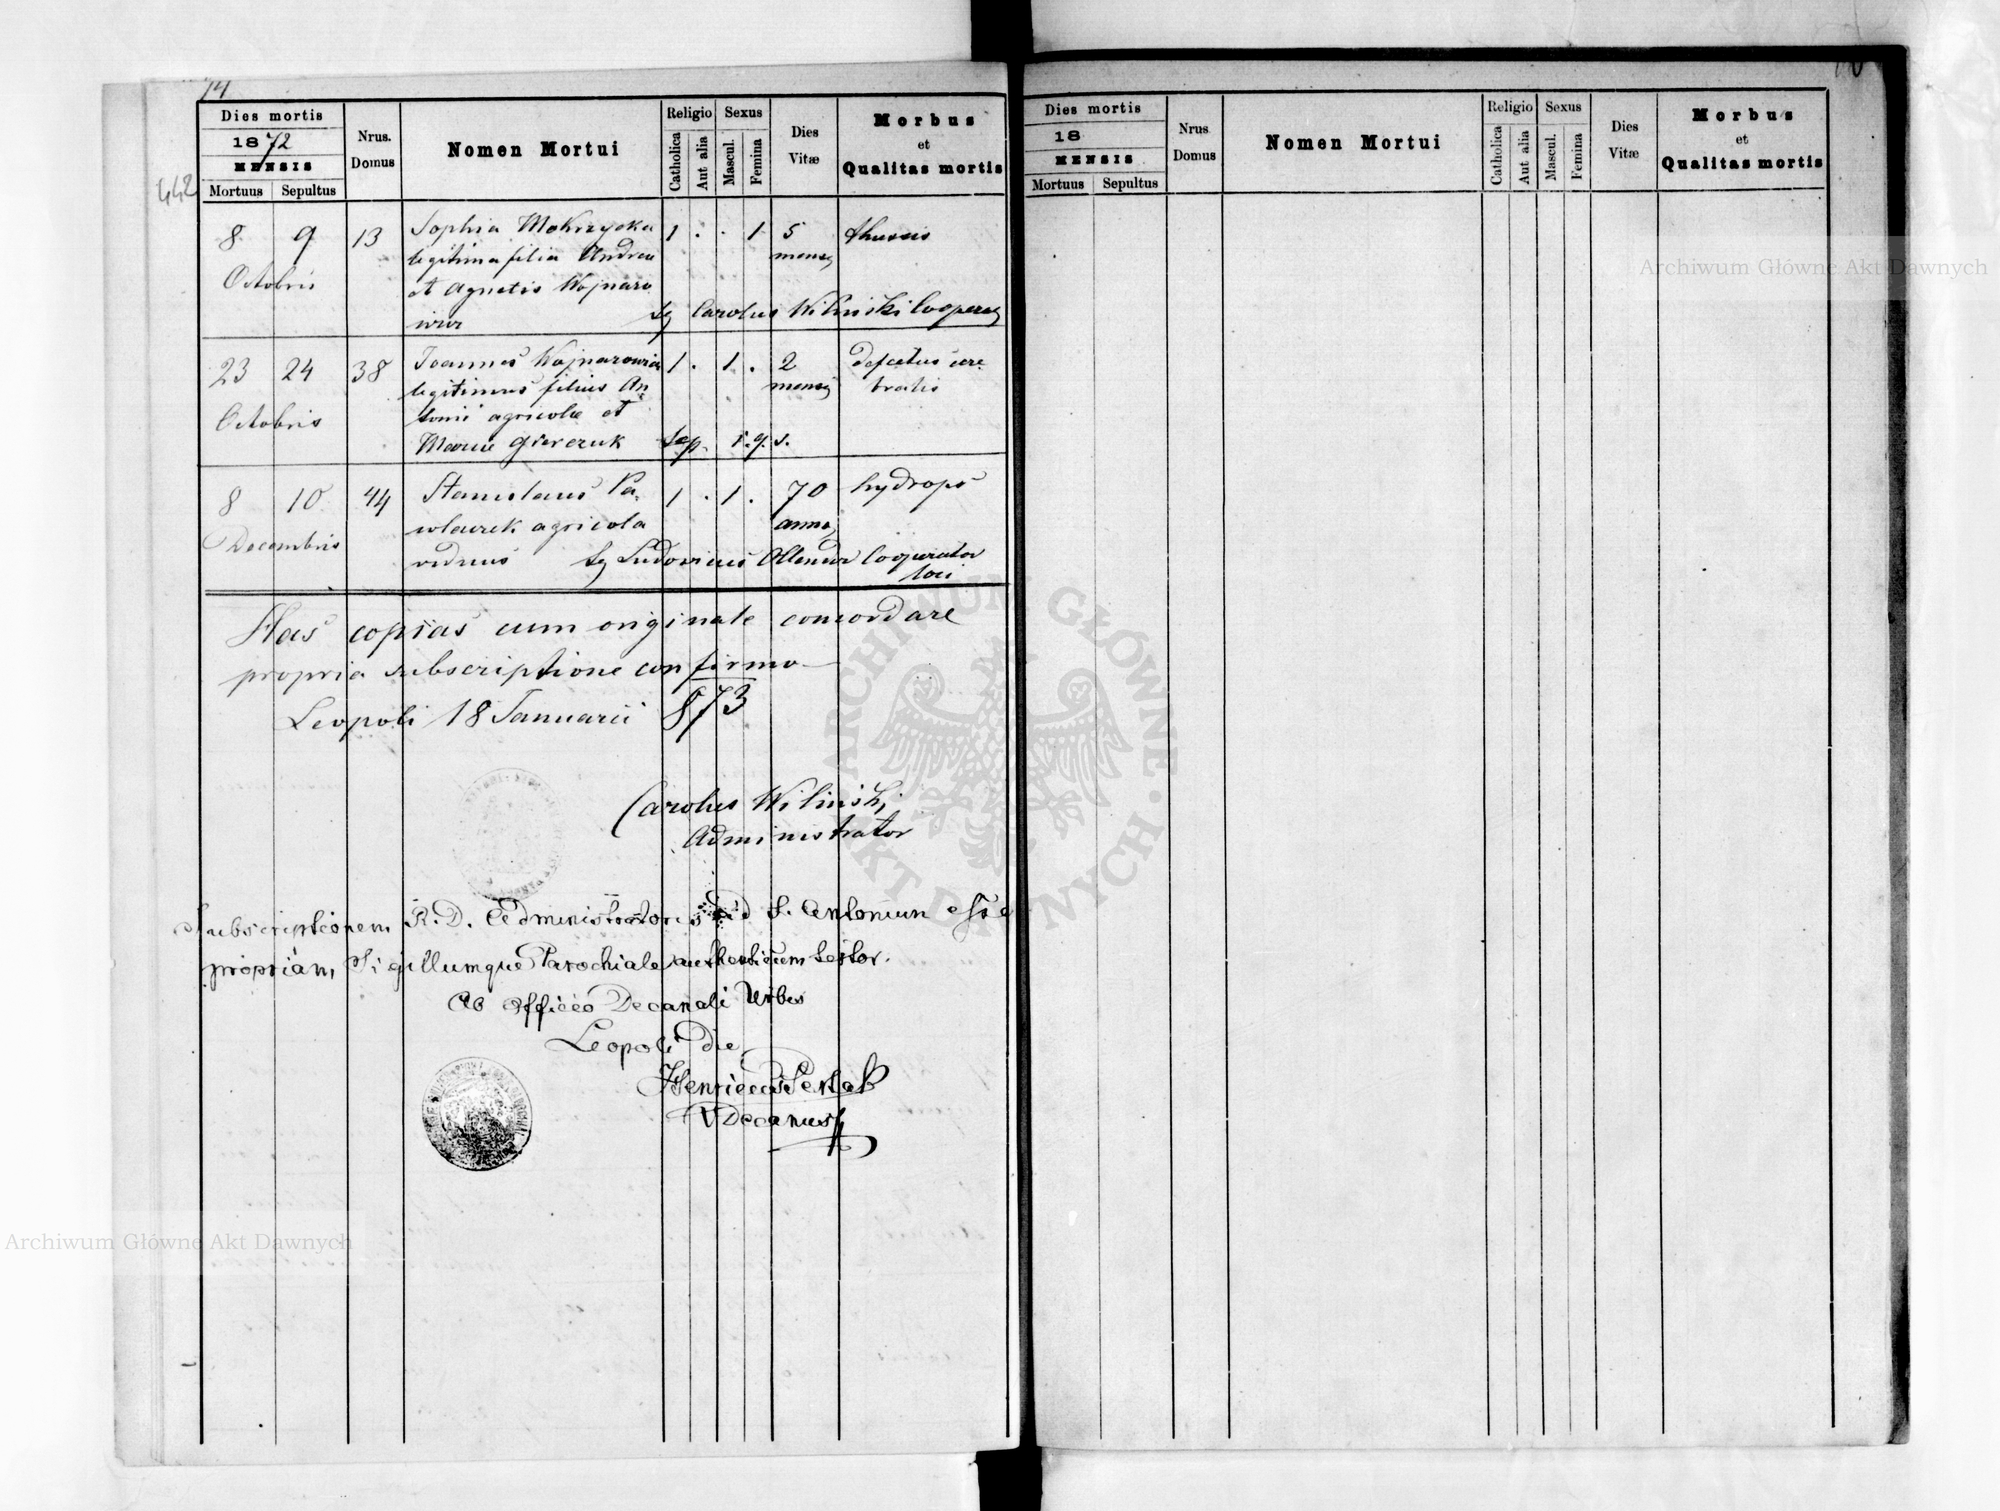 74
Dies mortis
1872
MENSIS
Mortuus Sepultus
Nrus. Domus
Nomen Mortui
Religio
Catholica
Aut alia
Sexus
Mascul.
Femina
Dies Vitæ
Morbus
et
Qualitas mortis
442
8 9 13 Sophia Mokrzycka 1 . . 1 5
legitima filia Andreae mens
Octobris et Agnetis Wojnaro
wicz Sg Carolus Wilinski Cooper
23 24 38 Joannes Wojnarowicz 1 . 1 . 2 Defectus cere-
legitimus filius An- mens bralis
Octobris tonii agricolae et
Mariae Sep. i. q. s.
8 10 44 Stanislaus Pa- 1 . 1 . 70 hydrops
wlaczek agricola anno
Decembris viduus Sg Ludovicus Cooperator
loci
Has copias cum originale concordare
propria subscriptione confirmo
Leopoli 18 Januarii 873
Carolus Wilinski
Administrator
Subscriptionem R. D. Administratoris ad S. Antonium esse
propriam, Sigillumque Parochiale authenticum testor.
Ab Officio Decanali Urbis
Leopoli die
Henricus
VDecanus
Dies mortis
18
MENSIS
Mortuus Sepultus
Nrus Domus
Nomen Mortui
Religio
Catholica
Aut alia
Sexus
Mascul.
Femina
Dies Vitæ
Morbus
et
Qualitas mortis
Archiwum Główne Akt Dawnych
ARCHIWUM GŁÓWNE AKT DAWNYCH
Archiwum Główne Akt Dawnych